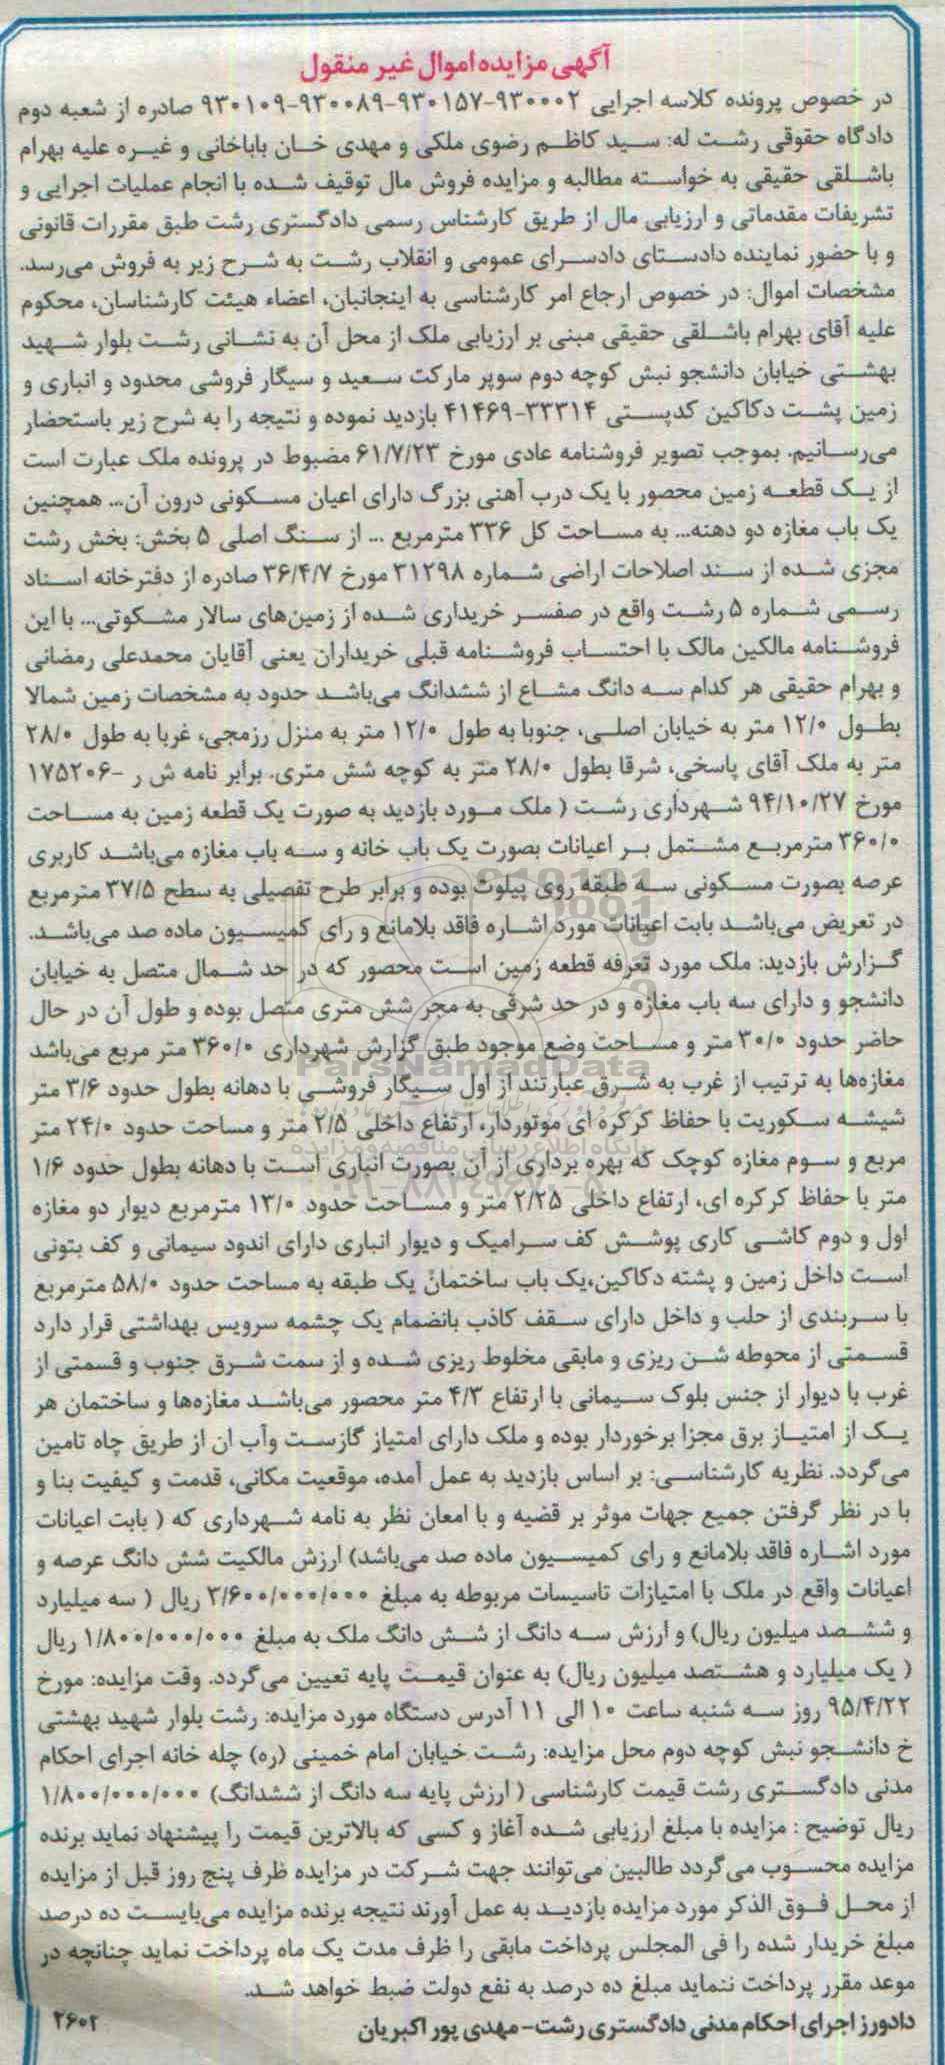 آگهی مزایده اموال غیر منقول
در خصوص پرونده کلاسه اجرایی ۹۳۰۰۰۲-۹۳۰۱۵۷-۹۳۰۰۸۹-۹۳۰۱۰۹ صادره از شعبه دوم
دادگاه حقوقی رشت له: سید کاظم رضوی ملکی و مهدی خان باباخانی و غیره علیه بهرام
باشلقی حقیقی به خواسته مطالبه و مزایده فروش مال توقیف شده با انجام عملیات اجرایی و
تشریفات مقدماتی و ارزیابی مال از طریق کارشناس رسمی دادگستری رشت طبق مقررات قانونی
و با حضور نماینده دادستای دادسرای عمومی و انقلاب رشت به شرح زیر به فروش می‌رسد.
مشخصات اموال: در خصوص ارجاع امر کارشناسی به اینجانبان، اعضاء هیئت کارشناسان، محکوم
علیه آقای بهرام باشلقی حقیقی مبنی بر ارزیابی ملک از محل آن به نشانی رشت بلوار شهید
بهشتی خیابان دانشجو نبش کوچه دوم سوپر مارکت سعید و سیگار فروشی محدود و انباری و
زمین پشت دکاکین کدپستی ۳۳۳۱۴-۴۱۴۶۹ بازدید نموده و نتیجه را به شرح زیر باستحضار
می‌رسانیم. بموجب تصویر فروشنامه عادی مورخ ۶۱/۷/۲۳ مضبوط در پرونده ملک عبارت است
از یک قطعه زمین محصور با یک درب آهنی بزرگ دارای اعیان مسکونی درون آن... همچنین
یک باب مغازه دو دهنه... به مساحت کل ۳۳۶ مترمربع ... از سنگ اصلی ۵ بخش: بخش رشت
مجزی شده از سند اصلاحات اراضی شماره ۳۱۲۹۸ مورخ ۳۶/۴/۷ صادره از دفترخانه اسناد
رسمی شماره ۵ رشت واقع در صفسر خریداری شده از زمین‌های سالار مشکوتی... با این
فروشنامه مالکین مالک با احتساب فروشنامه قبلی خریداران یعنی آقایان محمدعلی رمضانی
و بهرام حقیقی هر کدام سه دانگ مشاع از ششدانگ می‌باشد حدود به مشخصات زمین شمالا
بطول ۱۲/۰ متر به خیابان اصلی، جنوبا به طول ۱۲/۰ متر به منزل رزمجی، غربا به طول ۲۸/۰
متر به ملک آقای پاسخی، شرقا بطول ۲۸/۰ متر به کوچه شش متری. برابر نامه ش ر -۱۷۵۲۰۶
مورخ ۹۴/۱۰/۲۷ شهرداری رشت ( ملک مورد بازدید به صورت یک قطعه زمین به مساحت
۳۶۰/۰ مترمربع مشتمل بر اعیانات بصورت یک باب خانه و سه باب مغازه می‌باشد کاربری
عرصه بصورت مسکونی سه طبقه روی پیلوت بوده و برابر طرح تفصیلی به سطح ۳۷/۵ مترمربع
در تعریض می‌باشد بابت اعیانات مورد اشاره فاقد بلامانع و رای کمیسیون ماده صد می‌باشد.
گزارش بازدید: ملک مورد تعرفه قطعه زمین است محصور که در حد شمال متصل به خیابان
دانشجو و دارای سه باب مغازه و در حد شرقی به مجر شش متری متصل بوده و طول آن در حال
حاضر حدود ۳۰/۰ متر و مساحت وضع موجود طبق گزارش شهرداری ۳۶۰/۰ متر مربع می‌باشد
مغازه‌ها به ترتیب از غرب به شرق عبارتند از اول سیگار فروشی با دهانه بطول حدود ۳/۶ متر
شیشه سکوریت با حفاظ کرکره ای موتوردار، ارتفاع داخلی ۲/۵ متر و مساحت حدود ۲۴/۰ متر
مربع و سوم مغازه کوچک که بهره برداری از آن بصورت انباری است با دهانه بطول حدود ۱/۶
متر با حفاظ کرکره ای، ارتفاع داخلی ۲/۲۵ متر و مساحت حدود ۱۳/۰ مترمربع دیوار دو مغازه
اول و دوم کاشی کاری پوشش کف سرامیک و دیوار انباری دارای اندود سیمانی و کف بتونی
است داخل زمین و پشته دکاکین،یک باب ساختمان یک طبقه به مساحت حدود ۵۸/۰ مترمربع
با سربندی از حلب و داخل دارای سقف کاذب بانضمام یک چشمه سرویس بهداشتی قرار دارد
قسمتی از محوطه شن ریزی و مابقی مخلوط ریزی شده و از سمت شرق جنوب و قسمتی از
غرب با دیوار از جنس بلوک سیمانی با ارتفاع ۴/۳ متر محصور می‌باشد مغازه‌ها و ساختمان هر
یک از امتیاز برق مجزا برخوردار بوده و ملک دارای امتیاز گازست وآب ان از طریق چاه تامین
می‌گردد. نظریه کارشناسی: بر اساس بازدید به عمل آمده، موقعیت مکانی، قدمت و کیفیت بنا و
با در نظر گرفتن جمیع جهات موثر بر قضیه و با امعان نظر به نامه شهرداری که ( بابت اعیانات
مورد اشاره فاقد بلامانع و رای کمیسیون ماده صد می‌باشد) ارزش مالکیت شش دانگ عرصه و
اعیانات واقع در ملک با امتیازات تاسیسات مربوطه به مبلغ ۳/۶۰۰/۰۰۰/۰۰۰ ریال ( سه میلیارد
و ششصد میلیون ریال) و ارزش سه دانگ از شش دانگ ملک به مبلغ ۱/۸۰۰/۰۰۰/۰۰۰ ریال
( یک میلیارد و هشتصد میلیون ریال) به عنوان قیمت پایه تعیین می‌گردد. وقت مزایده: مورخ
۹۵/۴/۲۲ روز سه شنبه ساعت ۱۰ الی ۱۱ آدرس دستگاه مورد مزایده: رشت بلوار شهید بهشتی
خ دانشجو نبش کوچه دوم محل مزایده: رشت خیابان امام خمینی (ره) چله خانه اجرای احکام
مدنی دادگستری رشت قیمت کارشناسی ( ارزش پایه سه دانگ از ششدانگ) ۱/۸۰۰/۰۰۰/۰۰۰
ریال توضیح : مزایده با مبلغ ارزیابی شده آغاز و کسی که بالاترین قیمت را پیشنهاد نماید برنده
مزایده محسوب می‌گردد طالبین می‌توانند جهت شرکت در مزایده ظرف پنج روز قبل از مزایده
از محل فوق الذکر مورد مزایده بازدید به عمل آورند نتیجه برنده مزایده می‌بایست ده درصد
مبلغ خریدار شده را فی المجلس پرداخت مابقی را ظرف مدت یک ماه پرداخت نماید چنانچه در
موعد مقرر پرداخت ننماید مبلغ ده درصد به نفع دولت ضبط خواهد شد.
دادورز اجرای احکام مدنی دادگستری رشت- مهدی پور اکبریان ۲۶۰۲
ParsNamadData